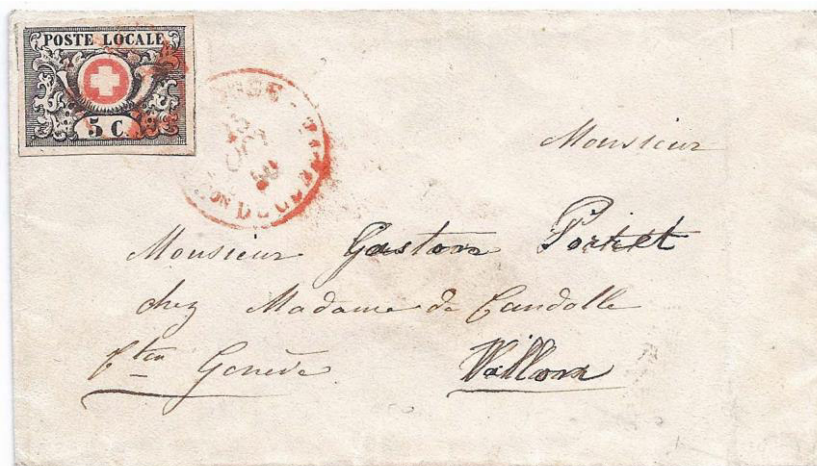 POSTE LOCALE
5 C.
25
50
Monsieur
Monsieur Gaston
chez Madame de Candolle
Cton Genève. Vallon